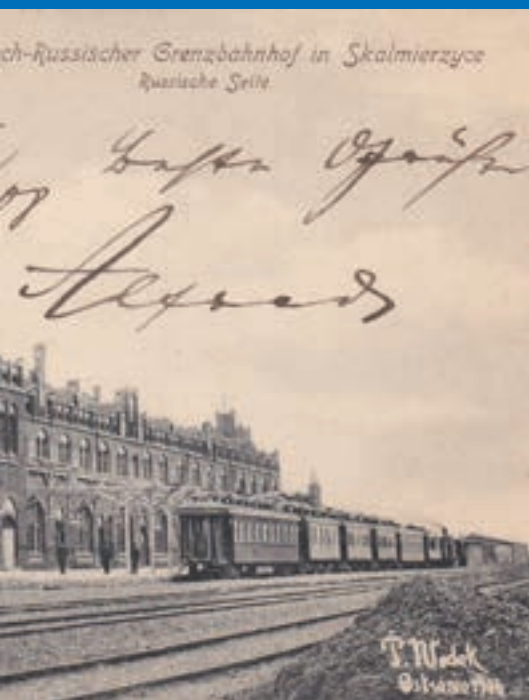 ch-Russischer Grenzbahnhof in Skalmierzyce
Russische Seite
beste Grüße
Alfred